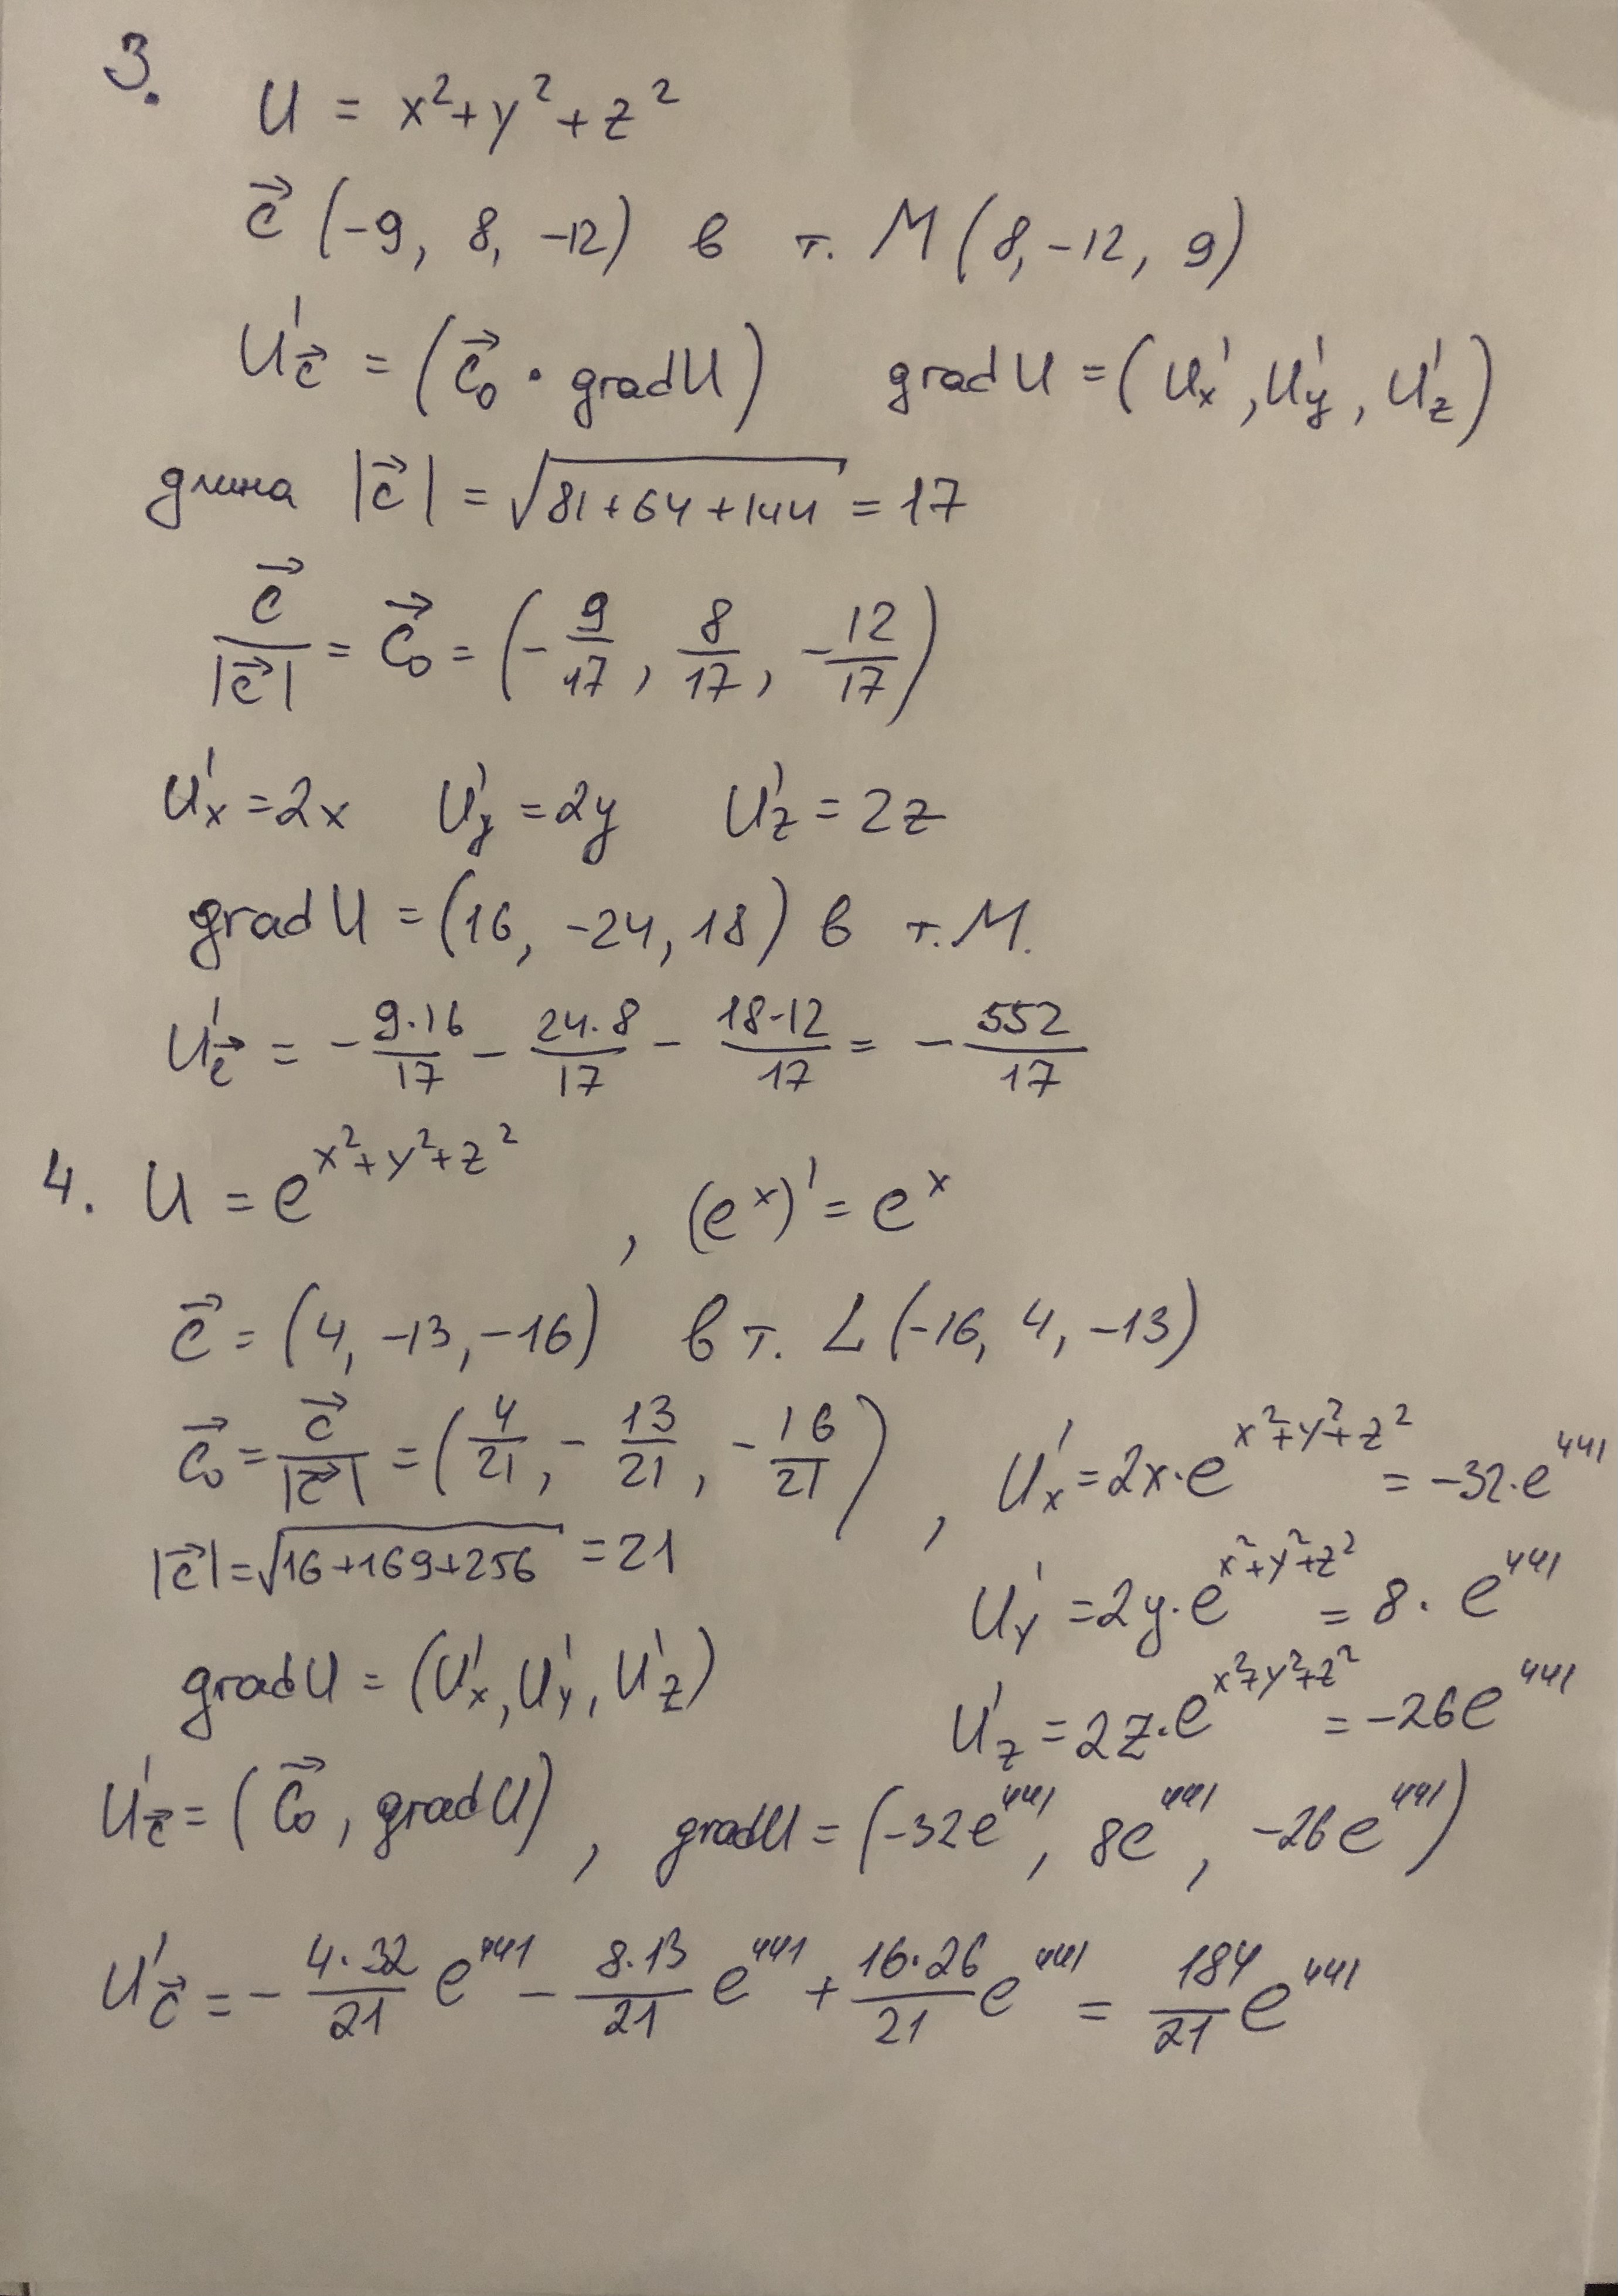 3.
U = x²+y²+z²
c⃗ (-9, 8, -12) в т. M (8, -12, 9)
U'c⃗ = (c⃗₀ · grad U) grad U = (U'x, U'y, U'z)
длина |c⃗| = √(81+64+144) = 17
c⃗/|c⃗| = c⃗₀ = (-9/17, 8/17, -12/17)
U'x = 2x U'y = 2y U'z = 2z
grad U = (16, -24, 18) в т. M.
U'c⃗ = - 9·16/17 - 24·8/17 - 18·12/17 = - 552/17
4. U = e^(x²+y²+z²) , (e^x)' = e^x
c⃗ = (4, -13, -16) в т. L (-16, 4, -13)
c⃗₀ = c⃗/|c⃗| = (4/21, -13/21, -16/21) , U'x = 2x·e^(x²+y²+z²) = -32·e^441
|c⃗| = √(16+169+256) = 21
U'y = 2y·e^(x²+y²+z²) = 8·e^441
grad U = (U'x, U'y, U'z)
U'z = 2z·e^(x²+y²+z²) = -26e^441
U'c⃗ = (c⃗₀, grad U) , grad U = (-32e^441, 8e^441, -26e^441)
U'c⃗ = - 4·32/21 e^441 - 8·13/21 e^441 + 16·26/21 e^441 = 184/21 e^441